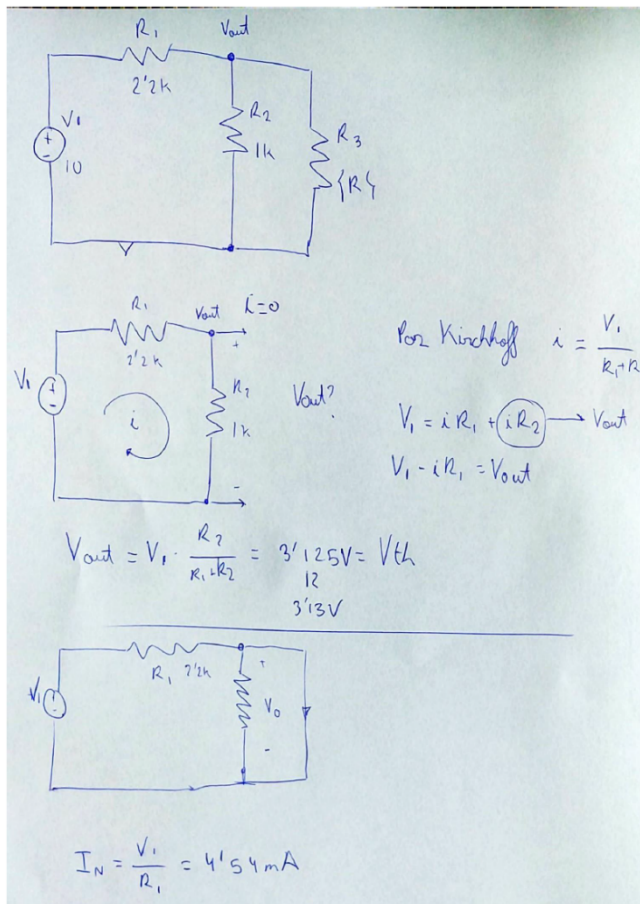 R1
Vout
2'2k
V1
10
R2
1k
R3
{R}
R1
Vout
i=0
2'2k
+
V1
R2
1k
i
Vout?
-
Por Kirchhoff i = V1 / R1+R
V1 = iR1 + iR2 → Vout
V1 - iR1 = Vout
Vout = V1 · R2 / R1+R2 = 3'125V = Vth
12
3'13V
R1 2'2k
+
V1
Vo
-
IN = V1 / R1 = 4'54mA